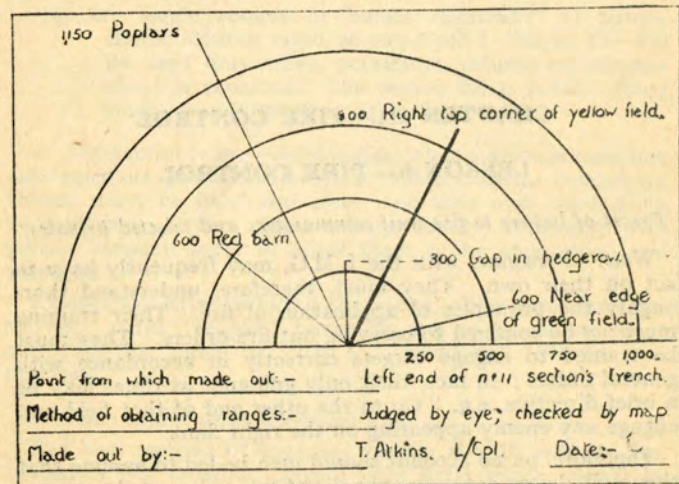 1,150 Poplars
800 Right top corner of yellow field.
600 Red barn
300 Gap in hedgerow
600 Near edge
of green field.
250 500 750 1,000.
Point from which made out:- Left end of No 11 section's trench.
Method of obtaining ranges:- Judged by eye; checked by map
Made out by:- T. Atkins. L/Cpl. Date:-